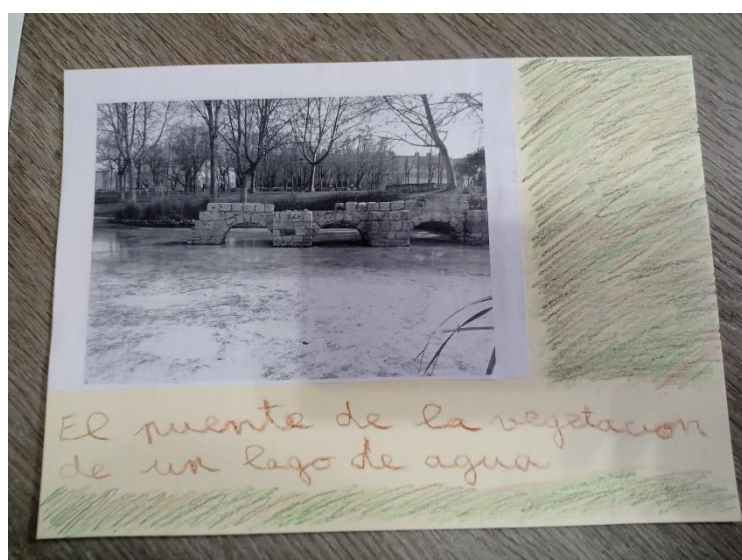 El puente de la vegetacion
de un lago de agua